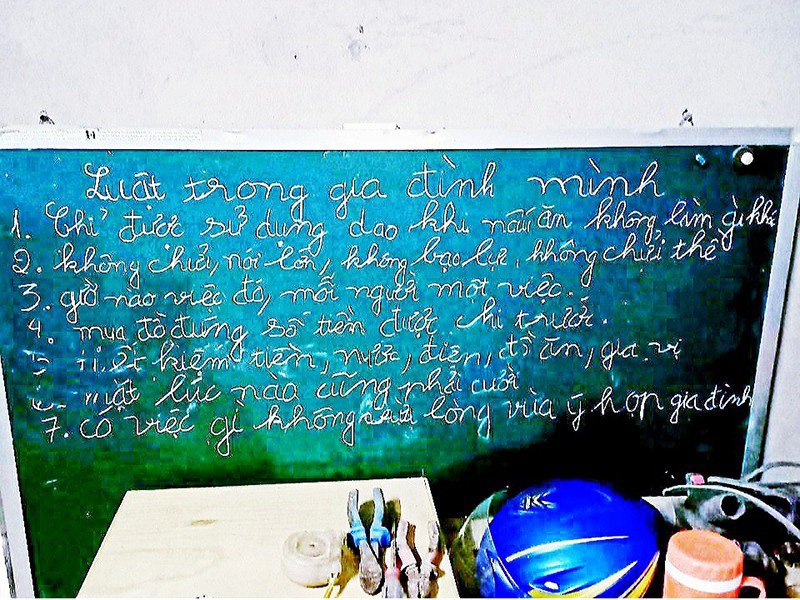 Luật trong gia đình mình
1. Chỉ được sử dụng dao khi nấu ăn không làm gì khác
2. không chửi, nói lớn, không bạo lực, không chửi thề
3. giờ nào việc đó, mỗi người một việc.
4. mua đồ đúng số tiền được chi trước.
5 tiết kiếm tiền, nước, điện, đồ ăn, gia vị
mặt lúc nào cũng phải cười
7. có việc gì không vừa lòng vừa ý họp gia đình